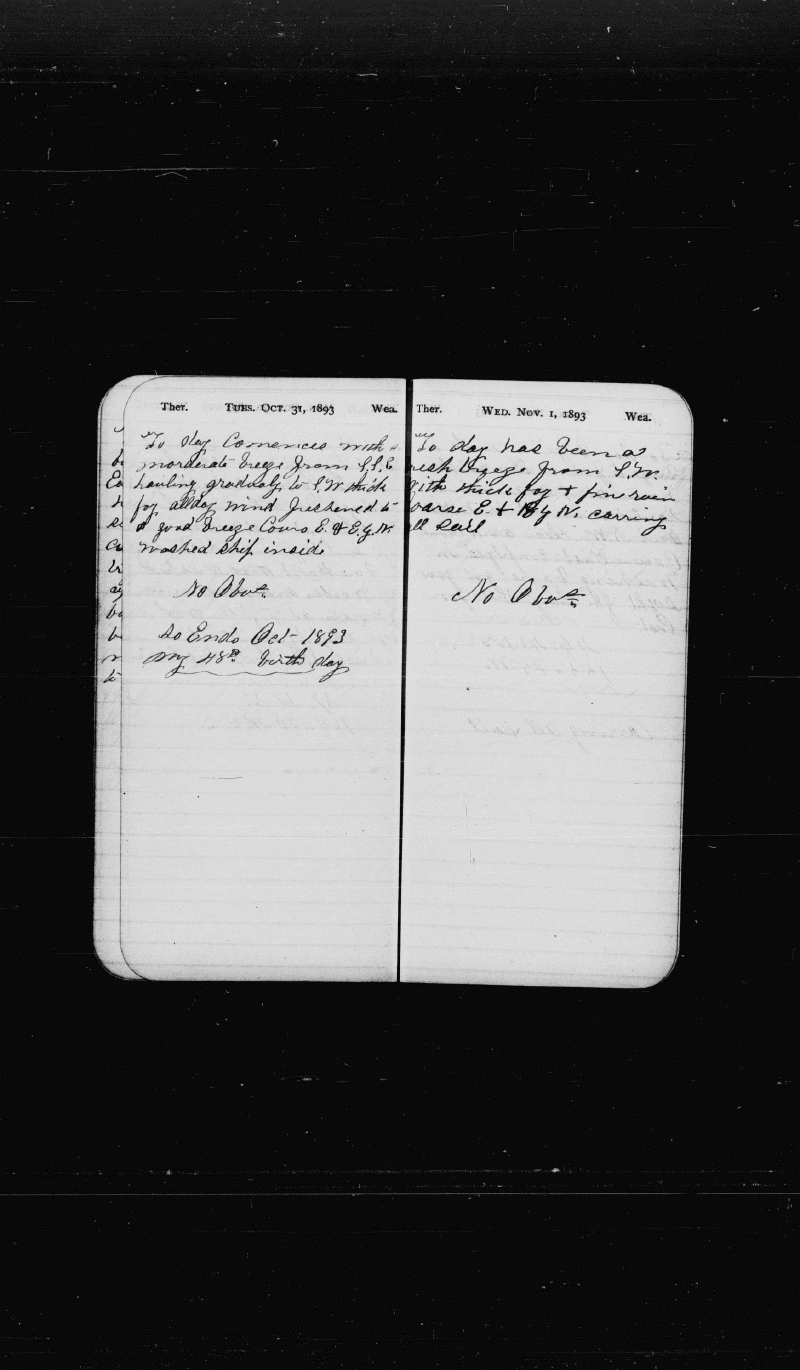 Ther. TUES. OCT. 31, 1893 Wea.
To day Comences with
morderate breeze from S.S.E
hauling gradualy to S.W thick
fog all day wind freshened to
a good breeze Cours E. & E.y.N.
washed ship inside
No Obvs.
So Ends Oct 1893
my 48th birth day
Ther. WED. NOV. 1, 1893 Wea.
To day has been a
resh breeze from S.W.
ith thick fog + fine rain
oarse E. + By N. carring
ll sail
No Obvs.